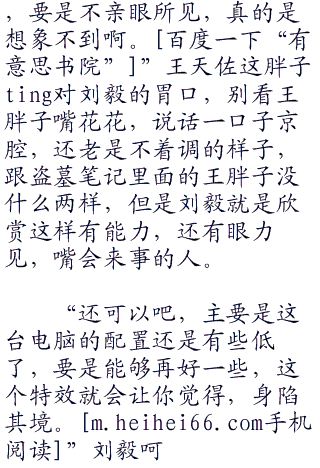 ，要是不亲眼所见，真的是
想象不到啊。[百度一下“有
意思书院”]”王天佐这胖子
ting对刘毅的胃口，别看王
胖子嘴花花，说话一口子京
腔，还老是不着调的样子，
跟盗墓笔记里面的王胖子没
什么两样，但是刘毅就是欣
赏这样有能力，还有眼力
见，嘴会来事的人。
“还可以吧，主要是这
台电脑的配置还是有些低
了，要是能够再好一些，这
个特效就会让你觉得，身陷
其境。[m.heihei66.com手机
阅读]”刘毅呵